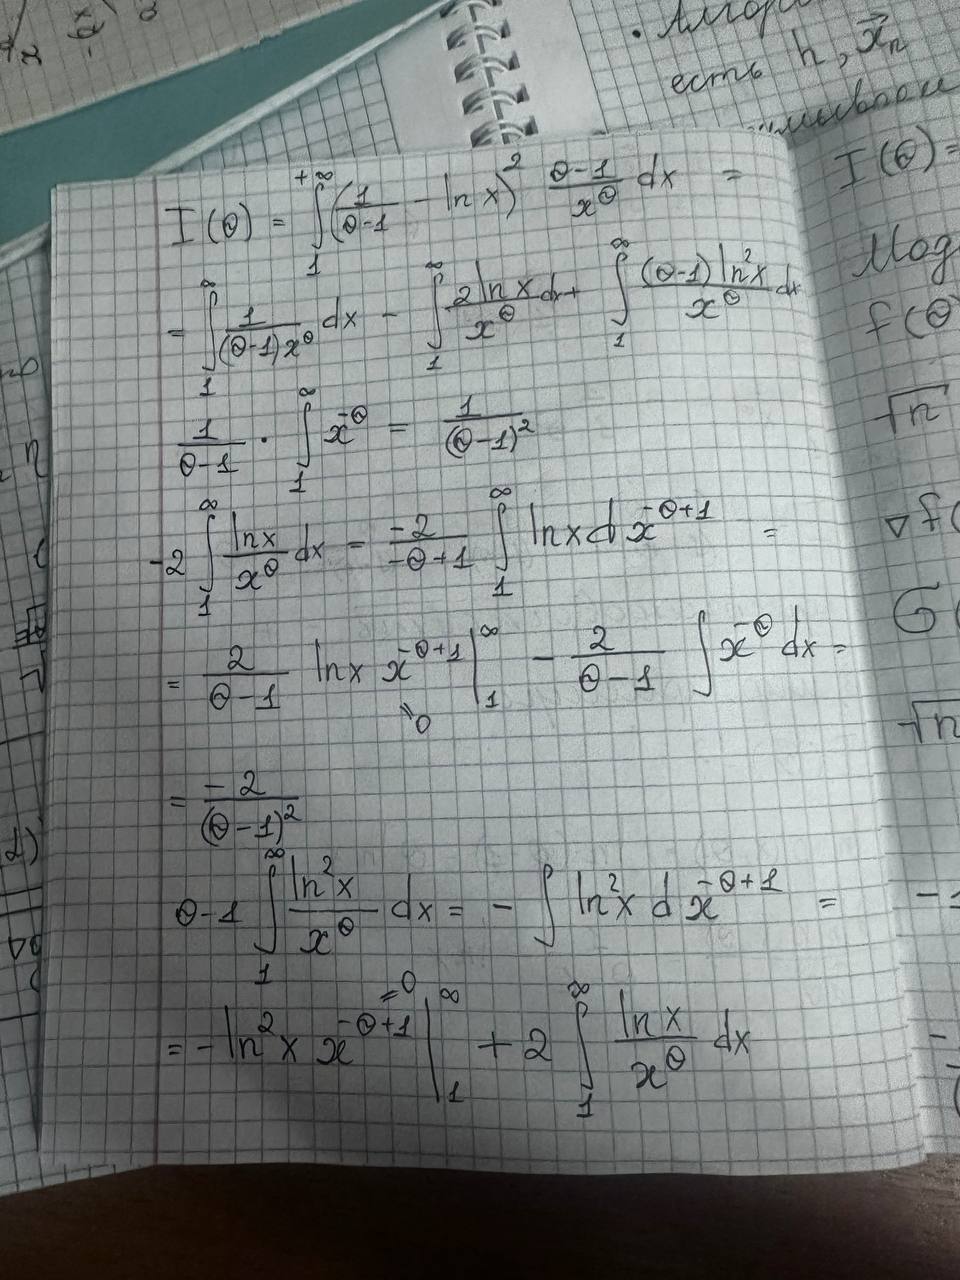 • Алгор
есть n, x⃗ₙ
I(θ) = ∫₁^{+∞} (1/(θ-1) - ln x)² (θ-1)/x^θ dx =
= ∫₁^∞ 1/((θ-1)x^θ) dx - ∫₁^∞ 2 ln x/x^θ dx + ∫₁^∞ (θ-1) ln²x/x^θ dx
1/(θ-1) · ∫₁^∞ x^{-θ} = 1/(θ-1)²
-2 ∫₁^∞ ln x/x^θ dx = -2/(-θ+1) ∫₁^∞ ln x d x^{-θ+1} =
= 2/(θ-1) ln x x^{-θ+1} |₁^∞ - 2/(θ-1) ∫ x^{-θ} dx =
= 0
= -2/(θ-1)²
θ-1 ∫₁^∞ ln²x/x^θ dx = - ∫ ln²x d x^{-θ+1} =
= 0
= - ln²x x^{-θ+1} |₁^∞ + 2 ∫₁^∞ ln x/x^θ dx
I(θ) =
Мод
f(θ
√n
∇f(
G(
√n